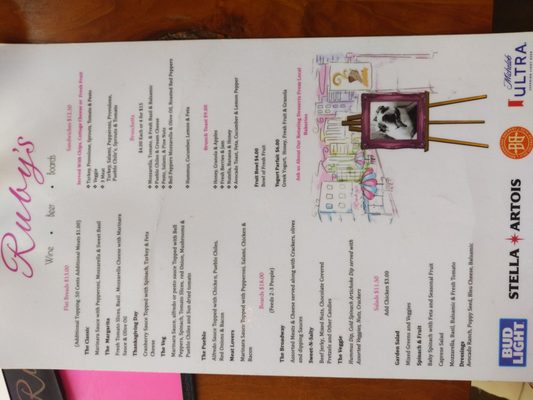 Ruby's
Wine • beer • boards
Flat Breads $13.00
(Additional Topping .50 Cents Additional Meats $1.00)
The Classic
Marinara Sauce with Pepperoni, Mozzarella & Sweet Basil
The Margarita
Fresh Tomato Slices, Basil, Mozzarella Cheese with Marinara
Sauce & Olive Oil
Thanksgiving Day
Cranberry Sauce Topped with Spinach, Turkey & Feta
Cheese
The Veg
Marinara sauce, alfredo or pesto sauce Topped with Bell
Peppers, Spinach, Tomato Slices, red Onion, Mushrooms &
Pueblo Chilies and Sun dried tomato
The Pueblo
Alfredo Sauce Topped with Chicken, Pueblo Chiles,
Red Onions & Bacon
Meat Lovers
Marinara Sauce Topped with Pepperoni, Salami, Chicken &
Bacon
Boards $18.00
(Feeds 2-3 People)
The Broadway
Assorted Meats & Cheese served along with Crackers, olives
and dipping Sauces
Sweet-N-Salty
Beef Jerky, Mixed Nuts, Chocolate Covered
Pretzels and Other Candies
The Veggie
Hummus Dip, Cold Spinach Artichoke Dip served with
Assorted Veggies, Nuts, Crackers
Salads $11.50
Add Chicken $3.00
Garden Salad
Mixed Greens and Veggies
Spinach & Fruit
Baby Spinach with Feta and Seasonal Fruit
Caprese Salad
Mozzarella, Basil, Balsamic & Fresh Tomato
Dressings
Avocado Ranch, Poppy Seed, Blue Cheese, Balsamic
Sandwiches $12.50
Served With Chips, Cottage Cheese or Fresh Fruit
Turkey, Provolone, Sprouts, Tomato & Pesto
Veggie
3 Meat
Turkey, Salami, Pepperoni, Provolone,
Pueblo Chile's, Sprouts & Tomato
Bruschetta
$4.00 Each or 4 for $15
Mozzarella, Tomato, & Fresh Basil & Balsamic
Pueblo Chile & Cream Cheese
Pesto, Salami, & Pine Nuts
Bell Peppers Mozzarella & Olive Oil, Roasted Red Peppers
Hummus, Cucumber, Lemon & Feta
Brunch Toast $9.00
Honey, Granola & Apples
Fresh Berries & Jam
Nutella, Banana & Honey
Avocado Toast, Feta, Cucumber & Lemon Pepper
Fruit Bowl $4.00
Bowl of Fresh Fruit
Yogurt Parfait $6.00
Greek Yogurt, Honey, Fresh Fruit & Granola
Ask us About Our Rotating Desserts From Local
Bakeries
Michelob
ULTRA
STELLA ★ ARTOIS
BUD
LIGHT